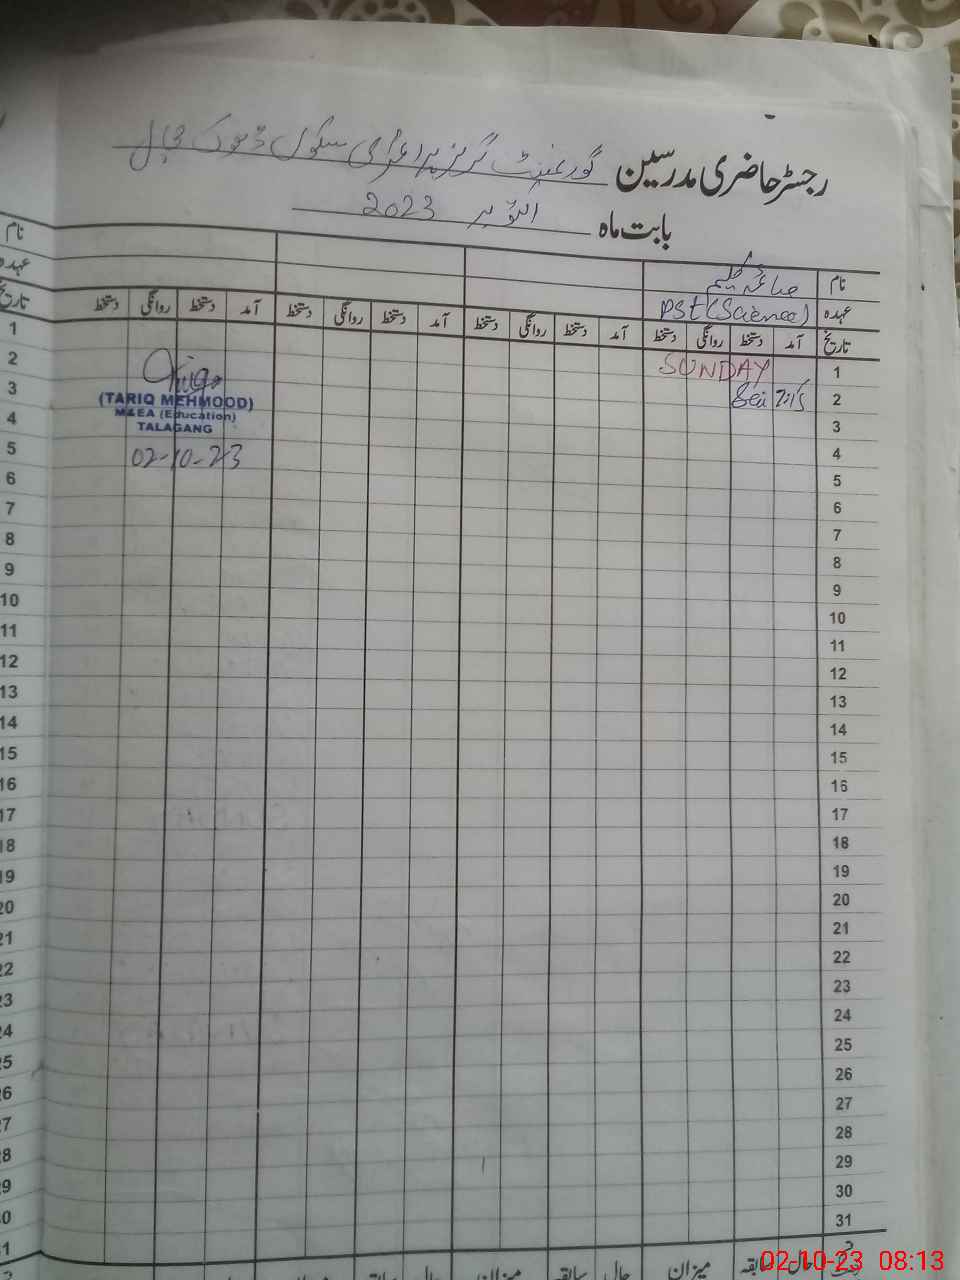 رجسٹر حاضری مدرسین گورنمنٹ گرلز پرائمری سکول ڈھوک
بابت ماہ اکتوبر 2023
نام صائمہ نام
عہدہ PST (Science) عہدہ
تاریخ آمد دستخط روانگی دستخط آمد دستخط روانگی دستخط آمد دستخط روانگی دستخط آمد دستخط روانگی دستخط تاریخ
1 SUNDAY 1
2 7:15 2
3 3
4 4
5 5
6 6
7 7
8 8
9 9
10 10
11 11
12 12
13 13
14 14
15 15
16 16
17 17
18 18
19 19
20 20
21 21
22 22
23 23
24 24
25
26
27
28
29
30
31
(TARIQ MEHMOOD)
M&EA (Education)
TALAGANG
02-10-23
سابقہ حال میزان سابقہ حال میزان سابقہ حال میزان
02-10-23 08:13